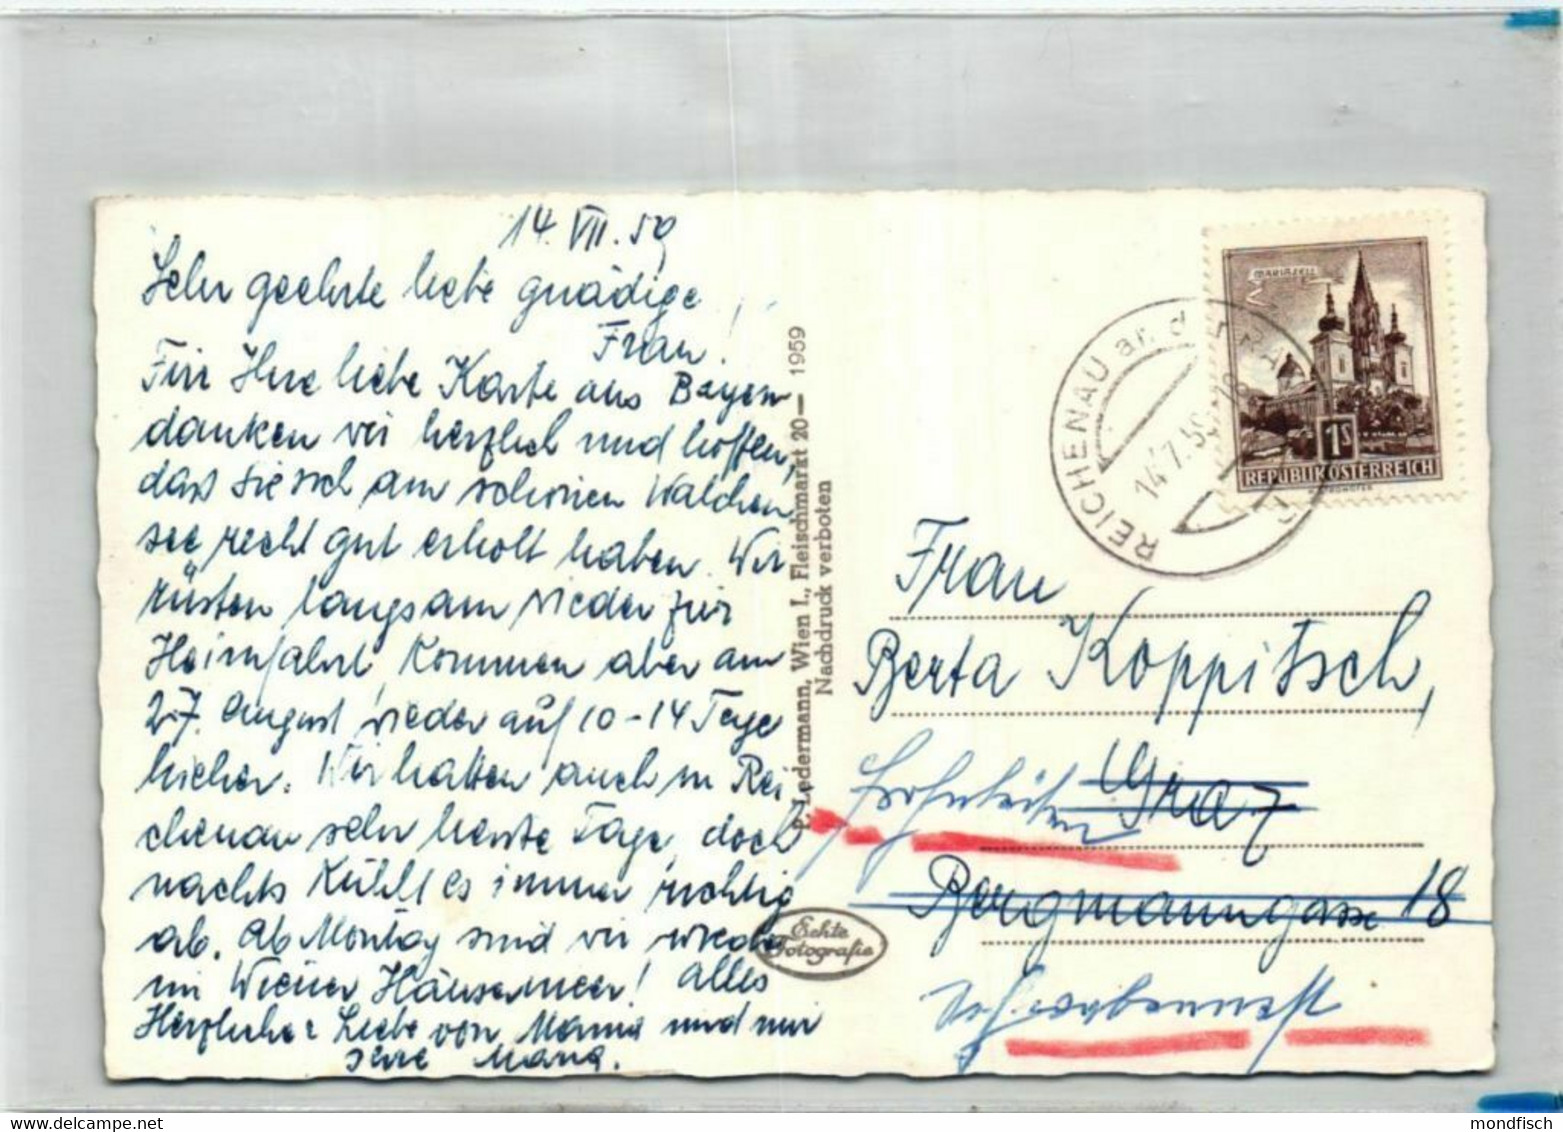 14. VII. 59
Sehr geehrte liebe gnädige
Frau!
Für Ihre liebe Karte aus Bayern
danken wir herzlich und hoffen,
dass Sie sich am schönen Walchen
see recht gut erholt haben. Wir
rüsten langsam wieder zur
Heimfahrt, kommen aber am
27. August wieder auf 10-14 Tage
hieher. Wir hatten auch in Rei
chenau sehr heisse Tage, doch
nachts kühlt es immer richtig
ab. Ab Montag sind wir wieder
im Wiener Häusermeer! Alles
Herzliche Liebe von Mama und mir
Ihre
P. Ledermann, Wien I., Fleischmarkt 20 — 1959
Nachdruck verboten
Echte
Fotografie
REICHENAU an. d.
14.7.59 18
MARIAZELL
1S
REPUBLIK ÖSTERREICH
Frau
Berta Koppitsch,
Graz
Bergmanngasse 18
mondfisch